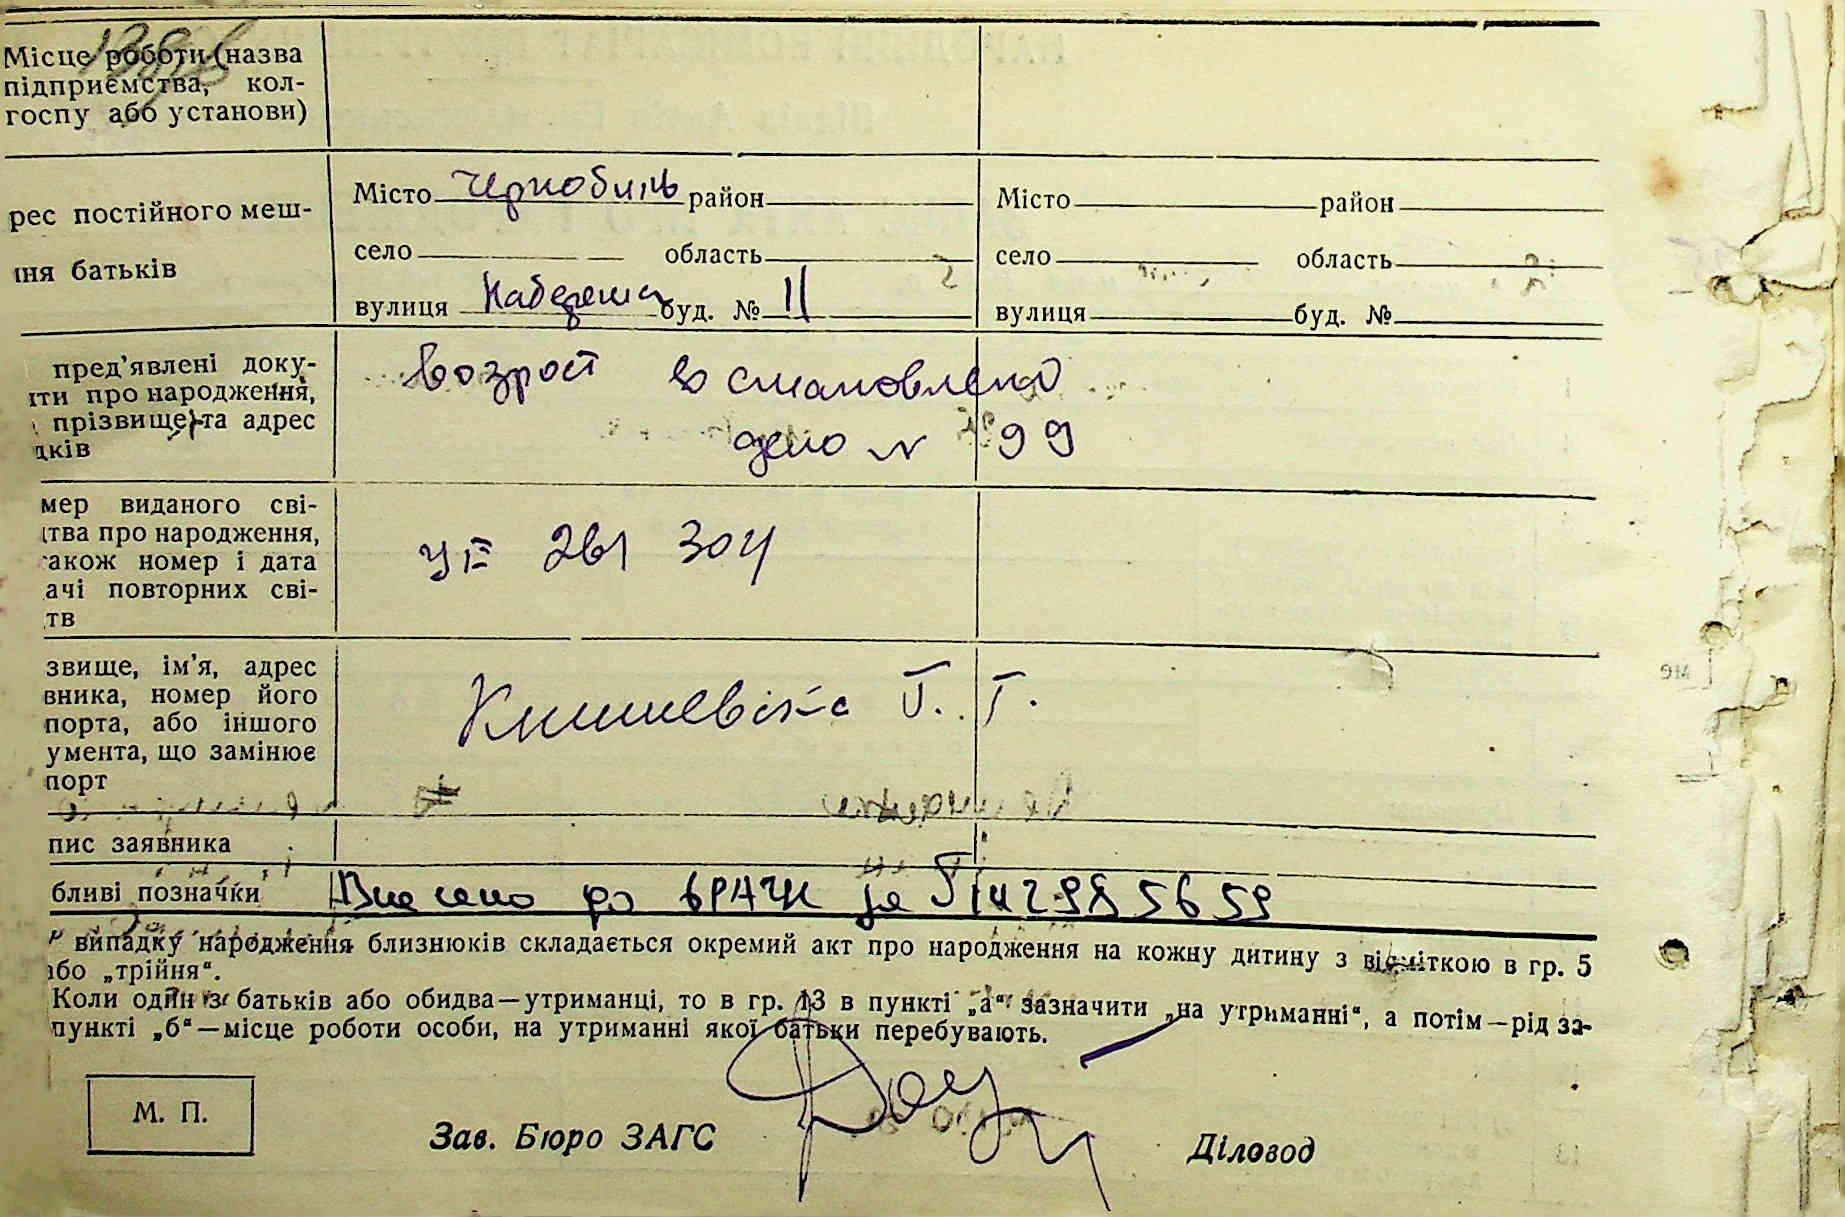 Місце роботи (назва
підприємства, кол-
госпу або установи)
рес постійного меш-
ння батьків
Місто Чернобиль район
село область
вулиця буд. № 11
Місто район
село область
вулиця буд. №
пред'явлені доку-
нти про народження,
прізвище та адрес
дків
возраст востановлено
дело N 99
мер виданого сві-
цтва про народження,
також номер і дата
ачі повторних сві-
тв
261 304
звище, ім'я, адрес
вника, номер його
порта, або іншого
умента, що замінює
порт
Г. Г.
пис заявника
бливі позначки Внесено до
випадку народження близнюків складається окремий акт про народження на кожну дитину з відміткою в гр. 5
або „трійня“.
Коли один із батьків або обидва—утриманці, то в гр. 13 в пункті „а“ зазначити „на утриманні“, а потім—рід за-
пункті „б“—місце роботи особи, на утриманні якої батьки перебувають.
М. П.
Зав. Бюро ЗАГС
Діловод